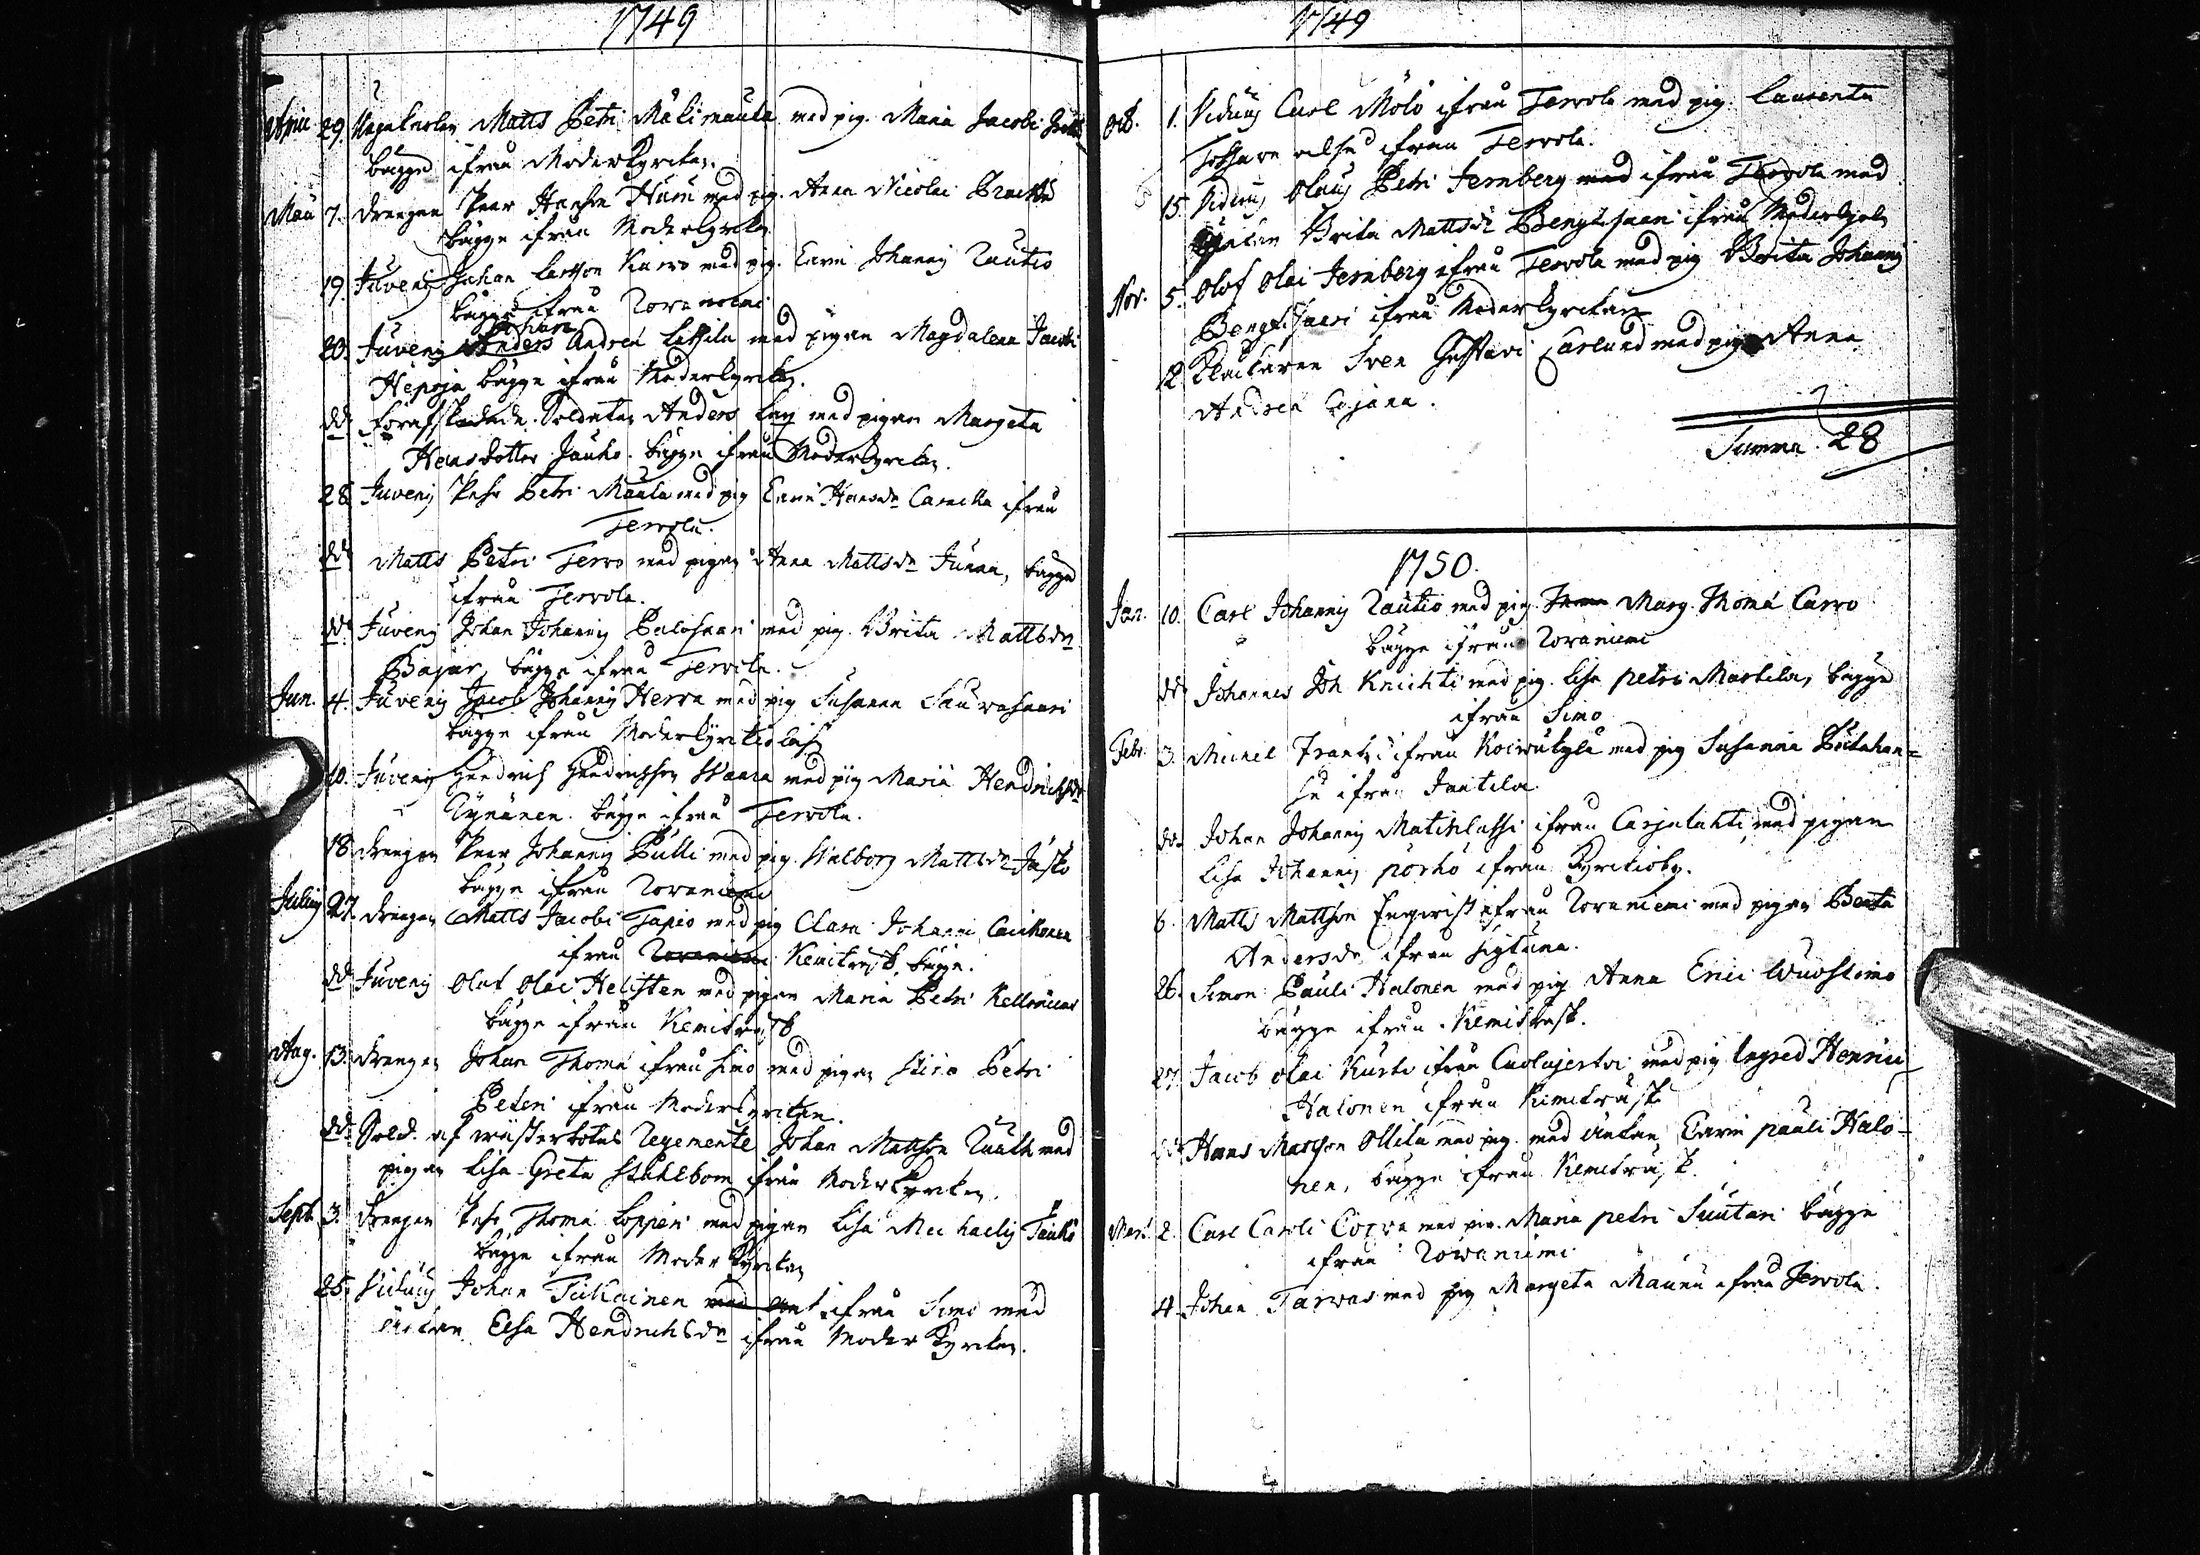 1749
April 29. Matts Petri Mälimaula med pig. Maria Jacobi
bägge ifrån Moderkyrckan.
Maii 7. drengen Pear Hansen Huru med pig. Anna Nicolai
bägge ifrån Moderkyrckan
19. Juvenis Johan Larsson Kuiwo med pig. Carin Johannis Rautio
bägge ifrån Rovaniemi
Johan
20. Juvenis Anders Andreæ Lassila med pigan Magdalena Jacobi
Hepoja bägge ifrån Moderkyrckan.
dd. förafskedade Soldaten Anders Lang med pigan Margeta
Hansdotter Jauho. bägge ifrån Moderkyrckan.
28. Juvenis Pehr Petri Maula med pig Carin Hansdr ifrån
Tervola.
dd Matts Petri Tervo med pigan Anna Mattsdr Junna, bägge
ifrån Tervola.
dd. Juvenis Johan Johannis Palosaari med pig. Brita Mattsdr
Bajar, bägge ifrån Tervola.
Jun. 4. Juvenis Jacob Johannis Herva med pig Susanna Sauvasaari
bägge ifrån
10. Juvenis Hendrich Hendrichsson Waara med pig Maria Hendrichsdr
Kynänen. bägge ifrån Tervola.
18. drengen Pear Johannis Pulli med pig. Walborg Mattsdr Jäskö
bägge ifrån Rovaniemi
Julii 27. drengen Matts Jacobi Tapio med pig Clara Johanni
ifrån Rovaniemi Kemiträsk, bägge.
dd Juvenis Olat Olai Helisten med pigan Maria Petri
bägge ifrån Kemiträsk
Aug. 13. drengen Johan Thomæ ifrån Simo med pigan Stina Petri
Peteri ifrån Moderkyrckan
dd. Sold. af wästerbotns Regemente Johan Mattson med
pigan Lisa Greta Stählbom ifrån Moderkyrckan.
Sept. 3. drengen Pehr Thomæ Loppen med pigan Lisa Michaelis Jauho
bägge ifrån Moderkyrckan
25. Viduus Johan Tiikainen med ifrån Simo med
änkan Elsa Hendrichsdr ifrån Moderkyrckan.
1749
Oct. 1. Viduus Carl Mölö ifrån Tervola med pig. Laurentii
ifrån Tervola.
15. Viduus Olaus Petri Jernberg med ifrån Tervola med
Änkan Brita Mattsdr Bengtsaari ifrån Moderkyrckan
Nov. 5. Olof Olai Jernberg ifrån Tervola med pig Brita Johannis
Bengtsaari ifrån Moderkyrckan
12. Klockaren Sven Gustavi Carlund med pig Anna
Andreæ Cojana.
Summa. 28
1750.
Jan. 10. Carl Johannis Rautio med pig. Marg. Thomæ Carvo
bägge ifrån Rovaniemi
dd Johannes Joh Knichti med pig. Lisa petri Martila, bägge
ifrån Simo
Febr. 3. Michel Frantz ifrån Koiwukylä med pig Susanna
ifrån Jantila
dd Johan Johannis Matinlassi ifrån Carjalahti, med pigan
Lisa Johannis pörhö ifrån Kyrckioby.
6. Matts Mattson Enqwist ifrån Rovaniemi med pigan Beata
Andersdr ifrån Sigtuna.
26. Simon Pauli Halonen med pig Anna Erici Wuostimo
bägge ifrån Kemiträsk.
27. Jacob Olai Kursti ifrån Cuolajerfvi med pig Ingred Henrici
Halonen ifrån Kemiträsk
dd Hans Mattson Ollila med pig. med änkan Carin pauli Halo-
nen, bägge ifrån Kemiträsk.
Mart. 2. Carl Caroli Corva med pig. Maria petri Suutari bägge
ifrån Rowaniemi
4. Johan Tarvas med pig Margeta Maunu ifrån Tervola.